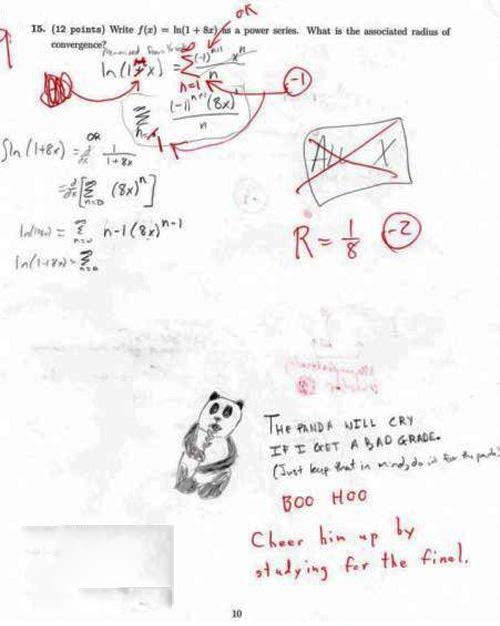 OK
15. (12 points) Write f(x) = ln(1 + 8x) as a power series. What is the associated radius of
convergence?
ln(1+x) = ∞ Σ n=1 (-1)^(n+1) x^n / n
-1
∞ Σ n=1 (-1)^(n+1) (8x)^n / n
OR
∫ln(1+8x) = d/dx 1/(1+8x)
= d/dx [∞ Σ n=0 (8x)^n]
ln(1+8x) = ∞ Σ n=0 n-1(8x)^(n-1)
ln(1+8x) = ∞ Σ n=0
All X
R = 1/8 -2
THE PANDA WILL CRY
IF I GET A BAD GRADE.
(Just keep that in mind, do it for the panda)
BOO HOO
Cheer him up by
studying for the final.
10